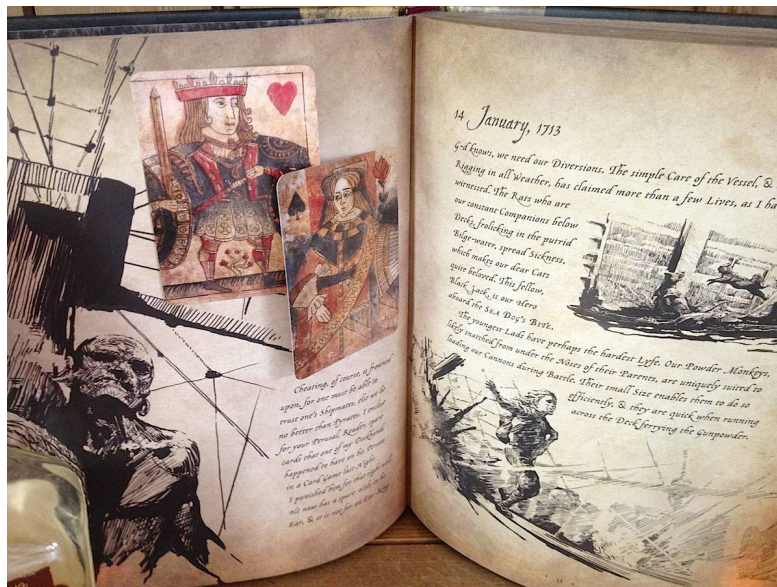 Cheating, of course, is frowned
upon, for one must be able to
trust one's Shipmates, else we be
no better than Pyrates. I enclose
for your Perusal, Reader, spare
cards that one of my Deckhands
happened to have on his Person
in a Card Game last Night.
I punished him for that right well:
He now has a spare hole in his
Ear, & it is not for an Ear-Ring.
14 January, 1713
G-d knows, we need our Diversions. The simple Care of the Vessel, &
Rigging in all Weather, has claimed more than a few Lives, as I ha
witnessed. The Rats who are
our constant Companions below
Decks, frolicking in the putrid
Bilge-water, spread Sickness,
which makes our dear Cats
quite beloved. This fellow,
Black Jack, is our Hero
aboard the SEA DOG'S BITE.
The youngest Lads have perhaps the hardest Lyfe. Our Powder Monkeys,
likely snatched from under the Noses of their Parents, are uniquely suited to
loading our Cannons during Battle. Their small Size enables them to do so
efficiently, & they are quick when running
across the Deck ferrying the Gunpowder.